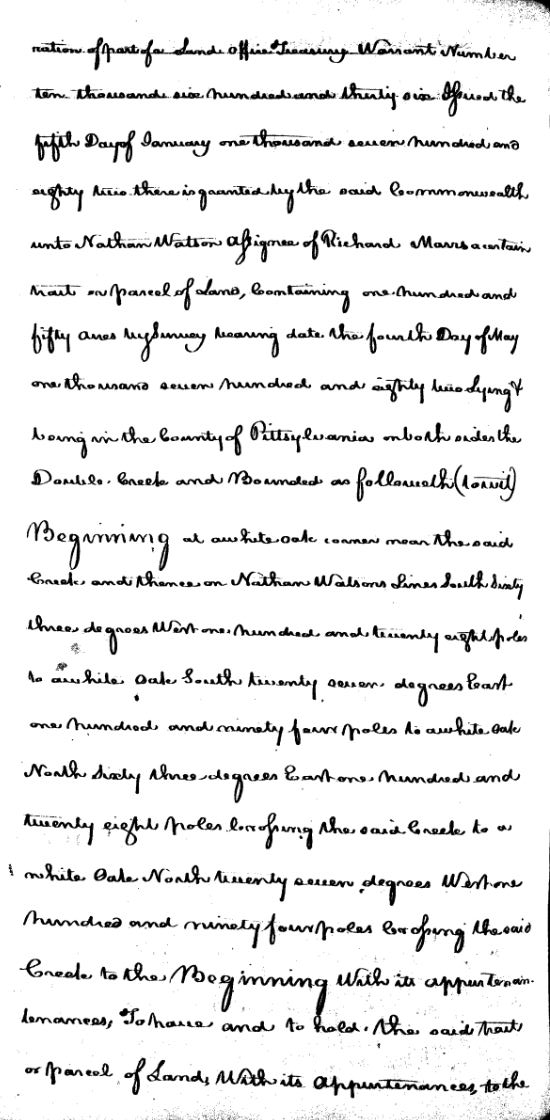 ration of part of a Land Office Treasury Warrant Number
ten thousand six hundred and thirty six Issued the
fifth Day of January one thousand seven hundred and
eighty two there is granted by the said Commonwealth
unto Nathan Watson Assignee of Richard Marrs a certain
tract or parcel of Land, Containing one hundred and
fifty acres by Survey bearing date the fourth Day of May
one thousand seven hundred and eighty two Lying &
being in the County of Pittsylvania on both sides the
Double Creek and Bounded as followeth (towit)
Beginning at a white oak corner near the said
Creek and thence on Nathan Watsons Lines South Sixty
three degrees West one hundred and twenty eight poles
to a white Oak South twenty seven degrees East
one hundred and ninety four poles to a white Oak
North Sixty three degrees East one hundred and
twenty eight poles Crossing the said Creek to a
white Oak North twenty seven degrees West one
hundred and ninety four poles Crossing the said
Creek to the Beginning With its appurtenan-
tenances, To have and to hold the said tract
or parcel of Land, With its appurtenances, to the